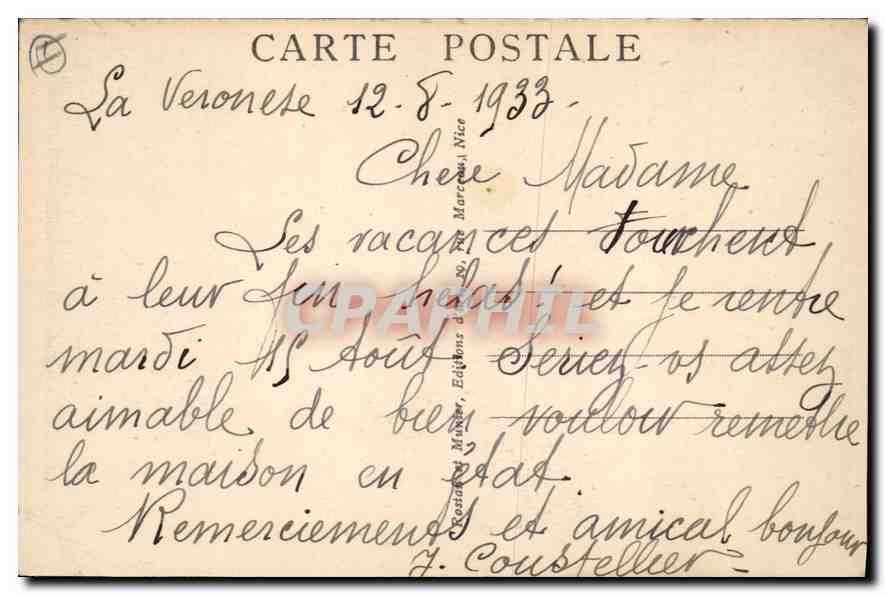 CARTE POSTALE
La Veronese 12-8-1933-
Chere Madame
Les vacances touchent
à leur fin helas! et je rentre
mardi 15 Août. Seriez-vs assez
aimable de bien vouloir remettre
la maison en état.
Remerciements et amical bonjour
J. Coustellier
Rostan et Munier, Editions d'Art, rue Marceau, Nice
CPAPHIL